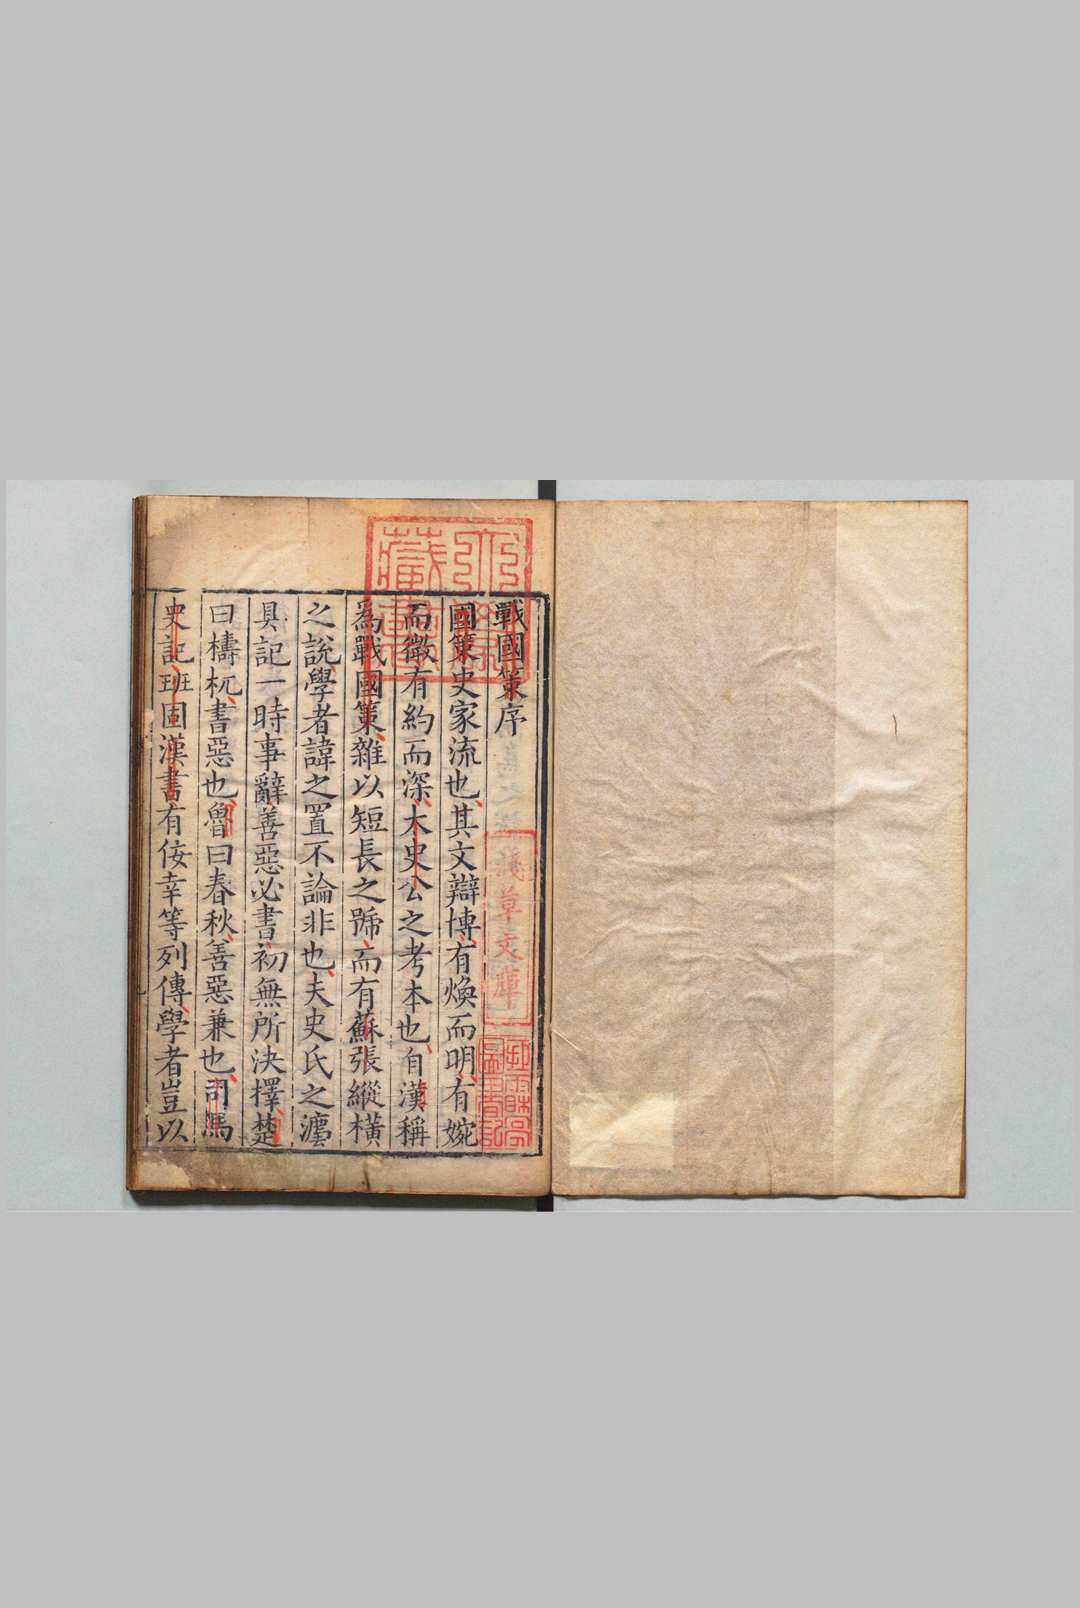 戰國策序
國策史家流也其文辯博有煥而明有婉
而微有約而深太史公之考本也自漢稱
為戰國策雜以短長之號而有蘇張縱橫
之說學者諱之置不論非也夫史氏之灋
具記一時事辭善惡必書初無所決擇楚
曰檮杌書惡也魯曰春秋善惡兼也司馬
史記班固漢書有佞幸等列傳學者豈以
淺草文庫